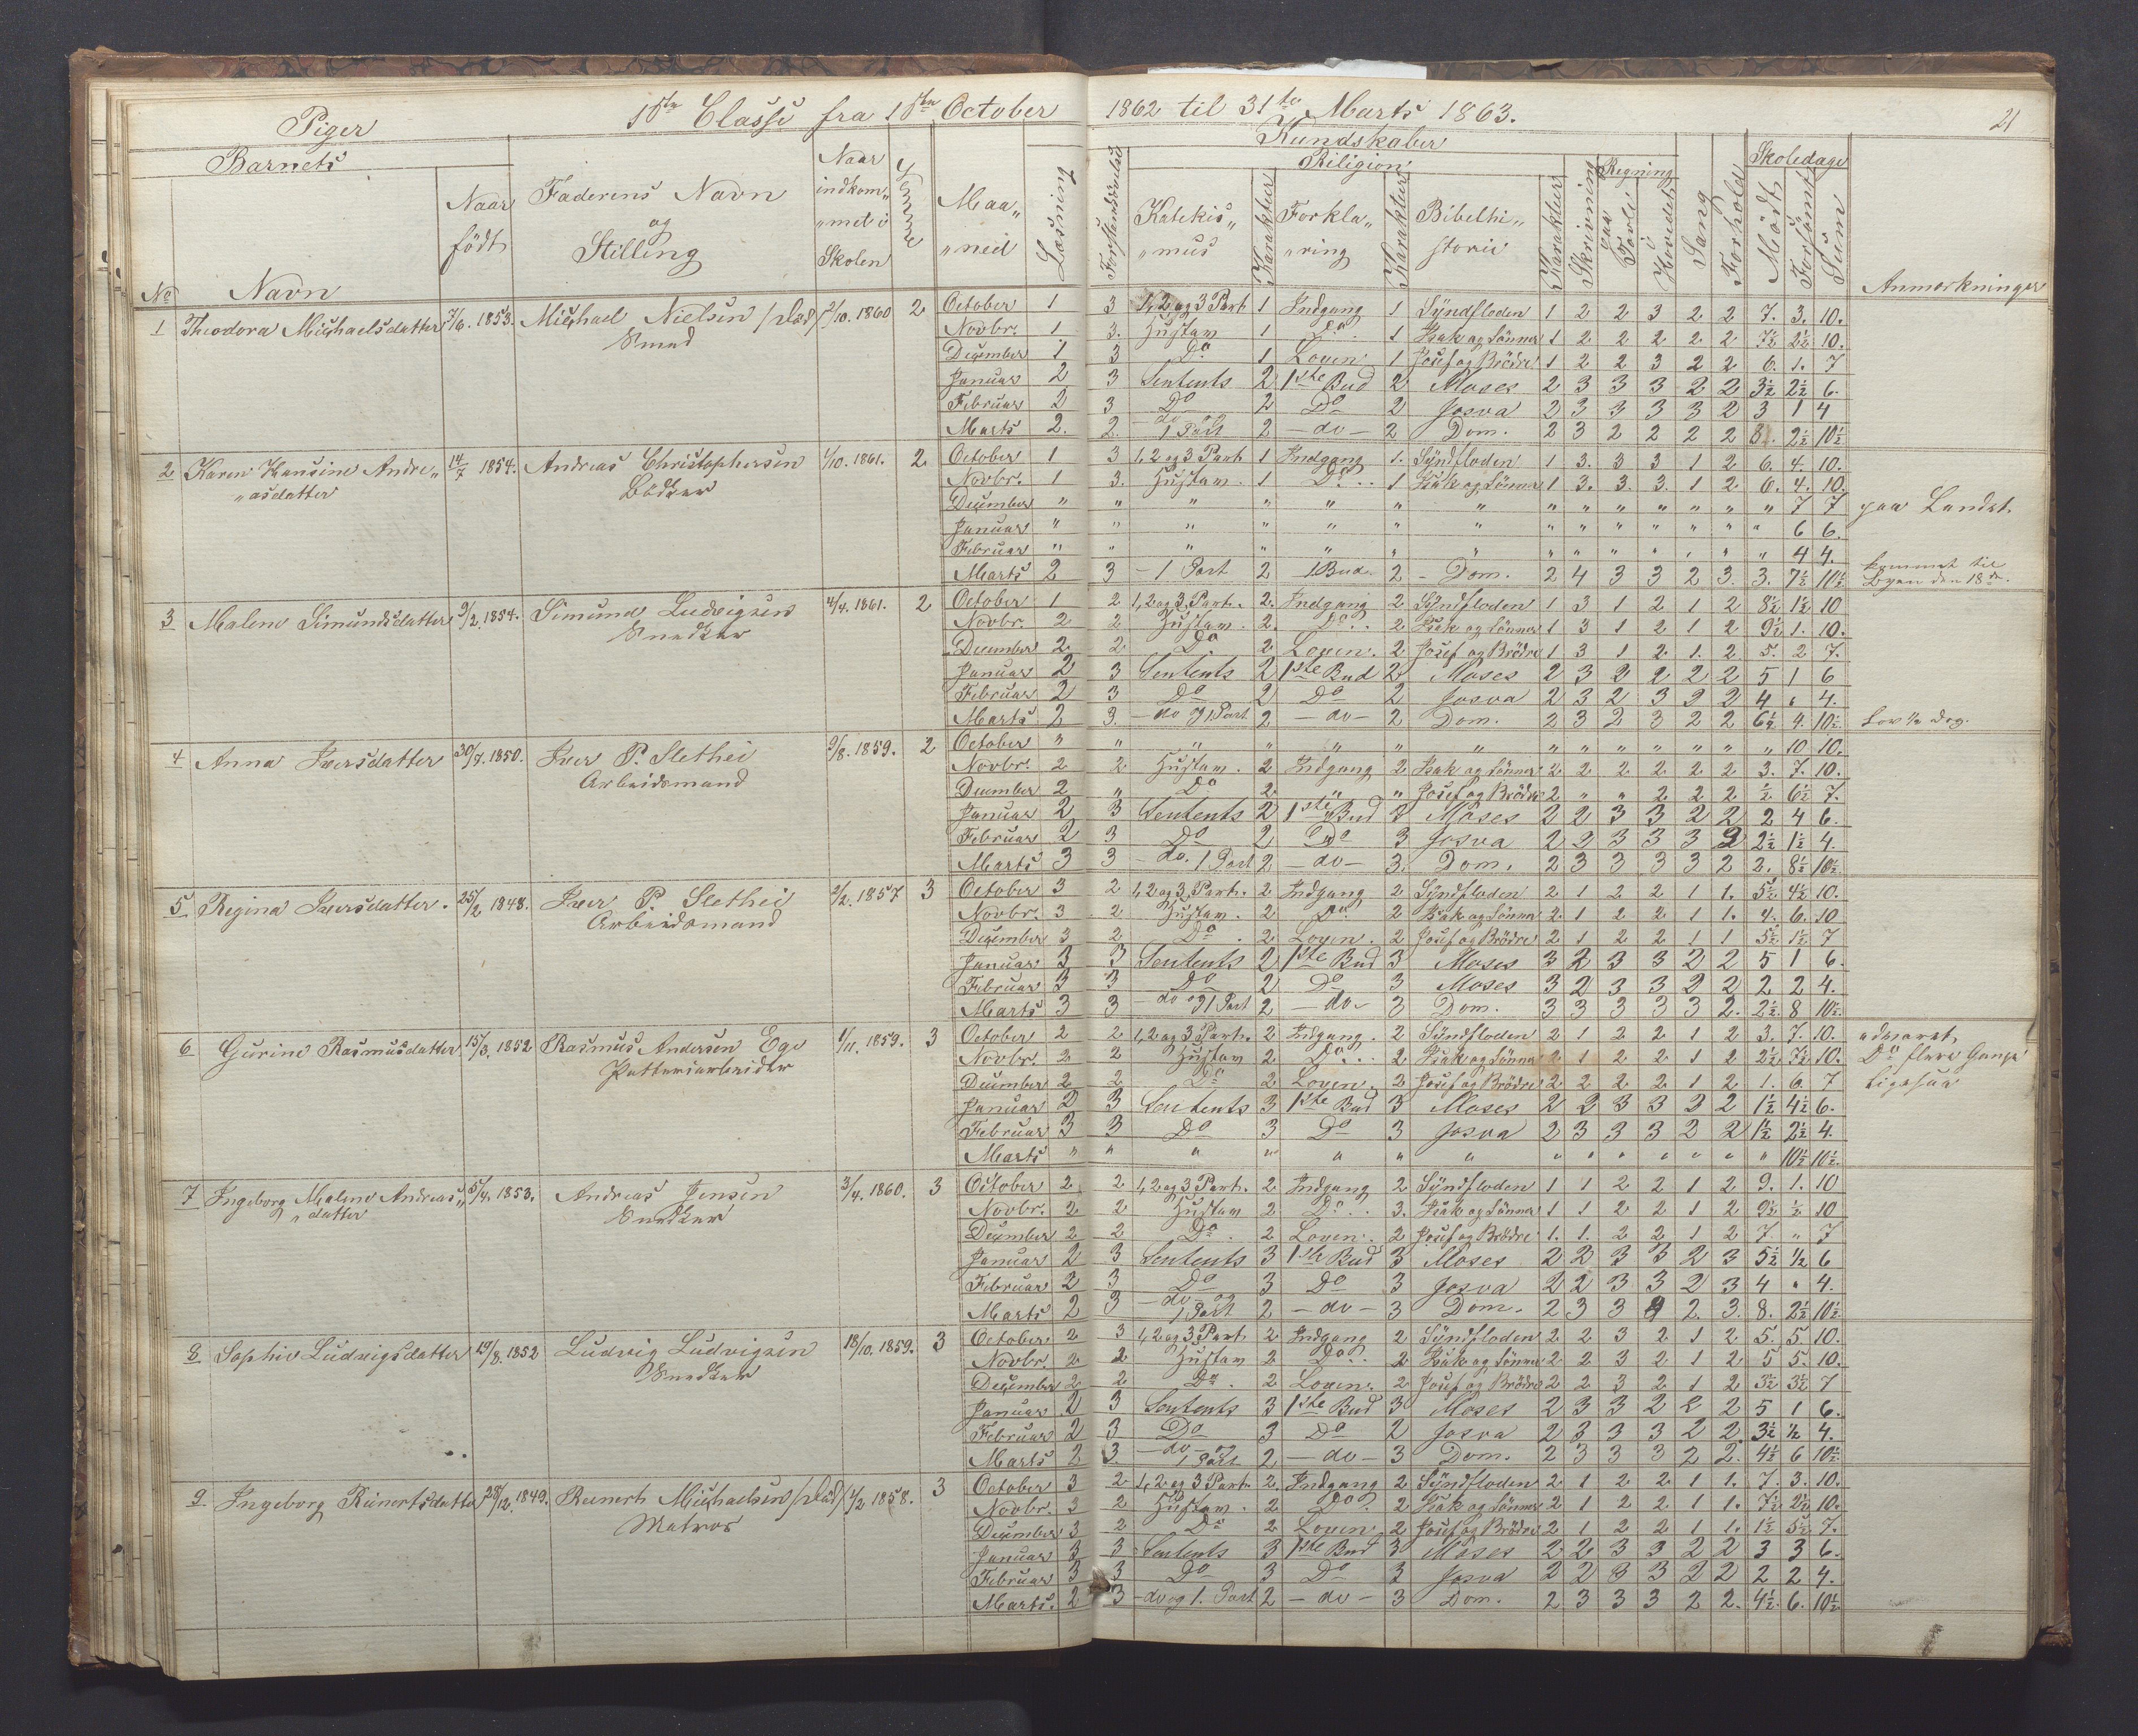 Piger 1ste Classe fra 1ste October 1862 til 31te Marts 1863. 21
Barnets
Kundskaber
Religion
Regning
Skoledage
No Navn
Naar födt
Faderens Navn og Stilling
Naar indkom„ „met i Skolen
Evne
Maa„ „ned
Læsning
Forstandsövelse
Katekis„ „mus
Karakter
Forkla„ „ring
Karakter
Bibelhi„ storie
Karakter
Skrivning
paa Tavle
i Hovedet
Sang
Forhold
Mödt
Forsömt
Sum
Anmerkninger
1 Theodora Michaelsdatter 7/6. 1853. Michael Nielsen /död/ 2/10. 1860 2 October 1 3 1, 2 og 3 Part 1 Indgang 1 Syndfloden 1 2 2 3 2 2 7. 3. 10.
Smed Novbr. 1 3. Hustav. 1 Do 1 Isak og Sönner 1 2 2 2 2 2 7½ 2½ 10.
December 1 3 Do 1 Loven 1 Josef og Brödre 1 2 2 3 2 2 6. 1. 7
Januar 2 3 Sentents 2 1ste Bud 2 Moses 2 3 3 3 2 2 3½ 2½ 6.
Februar 2 3 Do 2 Do 2 Josva 2 3 3 3 3 2 3 1 4
Marts 2. 2. do og 1 Part 2 — do — 2 Dom. 2 3 2 2 2 2 8. 2½ 10½
2 Karen Hansine Andre„ 14/7 1854. Andreas Christophersen 1/10. 1861. 2 October 1 3 1, 2 og 3 Part 1 Indgang 1. Syndfloden 1 3. 3 3 1 2 6. 4. 10.
„asdatter Bödker Novbr. 1 3. Hustav. 1 Do.. 1 Isak og Sönner 1 3. 3. 3. 1 2 6. 4. 10.
December „ „ „ „ „ „ „ „ „ „ „ „ „ „ 7 7 paa Landet.
Januar „ „ „ „ „ „ „ „ „ „ „ „ „ „ 6 6.
Februar „ „ „ „ „ „ „ „ „ „ „ „ „ „ 4 4.
Marts 2 3 — 1 Part 2 1 Bud. 2 — Dom. 2 4 3 3 2 3. 3. 7½ 10½ kommet til Byen den 18de.
3 Malene Simundsdatter 9/2. 1854. Simund Ludvigsen 4/4. 1861. 2 October 1 2 1, 2 og 3 Part. 2. Indgang 2 Syndfloden 1 3 1 2 1 2 8½ 1½ 10
Snedker Novbr. 2 2 Hustav. 2. Do.. 2 Isak og Sönner 1 3 1 2 1 2 9½ 1. 10.
December 2 2 Do 2 Loven. 2 Josef og Brödre 1 3 1 2 1. 2 5. 2 7.
Januar 2 3 Sentents 2 1ste Bud 2 Moses 2 3 2 2 2 2 5 1 6
Februar 2 3 Do 2 Do 2 Josva 2 3 2 3 2 2 4 „ 4.
Marts 2 3. — do og 1 Part 2 — do — 2 Dom. 2 3 2 3 2 2 6½ 4. 10½. Lov ½ Dag.
4 Anna Iversdatter 30/7. 1850. Iver P. Slethei 9/8. 1859. 2 October „ „ „ „ „ „ „ „ „ „ „ „ „ „ 10 10.
Arbeidsmand Novbr. 2 2 Hustav. 2 Indgang 2 Isak og Sönner 2 2 2 2 2 2 3. 7. 10.
December 2 „ Do 2 „ „ Josef og Brödre 2 „ „ 2 2 2 ½ 6½ 7.
Januar 2 3 Sentents 2 1ste Bud 3 Moses 2 2 3 3 2 2 2 4 6.
Februar 2 3 Do 2 Do 3 Josva 2 2 3 3 3 2 2½ 1½ 4.
Marts 3 3 — do. 1 Part 2 — do — 3. Dom. 2 3 3 3 3 2 2. 8½ 10½.
5 Regina Iversdatter. 25/2 1848. Iver P. Slethei 2/2. 1857 3 October 3 2 1, 2 og 3 Part. 2 Indgang 2 Syndfloden 2 1 2 2 1 1. 5½ 4½ 10.
Arbeidsmand Novbr. 3 2 Hustav. 2 Do. 2 Isak og Sönner 2 1 2 2 1 1. 4. 6. 10
December 3 2 Do. 2 Loven. 2 Josef og Brödre 2 1 2 2 1 1 5½ 1½ 7
Januar 3 3 Sentents 2 1ste Bud 3 Moses 3 2 3 3 2 2 5 1 6.
Februar 3 3 Do 2 Do 3 Moses 3 2 3 3 2 2 2 2 4.
Marts 3 3 — do og 1 Part 2 — do — 3 Dom. 3 3 3 3 3 2. 2½ 8 10½.
6 Gurine Rasmusdatter 15/3. 1852 Rasmus Andersen Ege 1/11. 1859. 3 October 2 2 1, 2 og 3 Part. 2 Indgang. 2 Syndfloden 2 1 2 2 1 2 3. 7. 10. advaret
Potteriarbeider Novbr. 2 2 Hustav 2 Do... 2 Isak og Sönner 2 1 2 2 1 2 2½ 7½ 10. Do flere Gange
December 2 2 Do 2 Loven. 2 Josef og Brödre 2 2 2 2 1 2 1. 6. 7 ligesaa
Januar 2 3 Sentents 3 1ste Bud 3 Moses 2 2 3 3 2 2 1½ 4½ 6.
Februar 3 3 Do 3 Do 3 Josva 2 3 3 3 2 2 1½ 2½ 4.
Marts „ „ „ „ „ „ „ „ „ „ „ „ „ „ 10½ 10½.
7 Ingeborg Malene Andreas„ 5/4. 1853. Andreas Jensen 3/4. 1860. 3 October 2 2 1, 2 og 3 Part. 2 Indgang 2 Syndfloden 1 1 2 2 1 2 9. 1. 10
„datter Snedker Novbr. 2 2 Hustav 2 Do.. 3. Isak og Sönner 1 1 2 2 1 2 9½ ½ 10
December 2 2 Do. 2 Loven. 2 Josef og Brödre 1. 1. 2 2 1 2 7. „ 7
Januar 2 3 Sentents 3 1ste Bud 3 Moses 2 2 3 3 2 3 5½ ½ 6
Februar 2 3 Do 3 Do 3 Josva 2 2 3 3 2 3 4 „ 4.
Marts 2 3 — do — og 1 Part 2 — do — 3 Dom. 2 3 3 4 2. 3. 8. 2½ 10½.
8 Sophie Ludvigsdatter 19/8. 1852 Ludvig Ludvigsen 18/10. 1859. 3 October 2 3 1, 2 og 3 Part 2 Indgang 2 Syndfloden 2 2 3 2 1 2 5. 5. 10.
Snedker Novbr. 2 2 Hustav 2 Do.. 2 Isak og Sönner 2 2 3 2 1 2 5 5. 10.
December 2 2 Do. 2 Loven. 2 Josef og Brödre 2 2 3 2 1 2 3½ 3½ 7
Januar 2 3 Sentents 3 1ste Bud 3 Moses 2 3 3 2 2 2 5 1 6.
Februar 2 3 Do 3 Do 2 Josva 2 3 3 3 2 2 3½ ½ 4.
Marts 2 3. — do — og 1 Part 2 — do — 3 Dom. 2 3 3 3 2 2. 4½ 6 10½.
9 Ingeborg Reinertsdatter 28/12. 1849. Reinert Michaelsen /död/ 1/2 1858. 3 October 3 2 1, 2 og 3 Part. 2 Indgang 2 Syndfloden 2 1 2 2 1 1. 7. 3. 10.
Matros Novbr. 3 2 Hustav. 2 Do. 2 Isak og Sönner 2 1 2 2 1 1. 7½ 2½ 10.
December 3 2 Do 2 Loven. 2 Josef og Brödre 2 1 2 2 1 1. 1½ 5½ 7.
Januar 3 3 Sentents 3 1ste Bud 3 Moses 2 2 3 3 2 2 3 3 6.
Februar 3 3 Do 3 Do 3 Josva 2 2 3 3 2 2 2 2 4.
Marts. 2 3 — do og 1. Part 2 — do — 3 Dom. 2 3 3 3 2 2. 4½. 6. 10½.